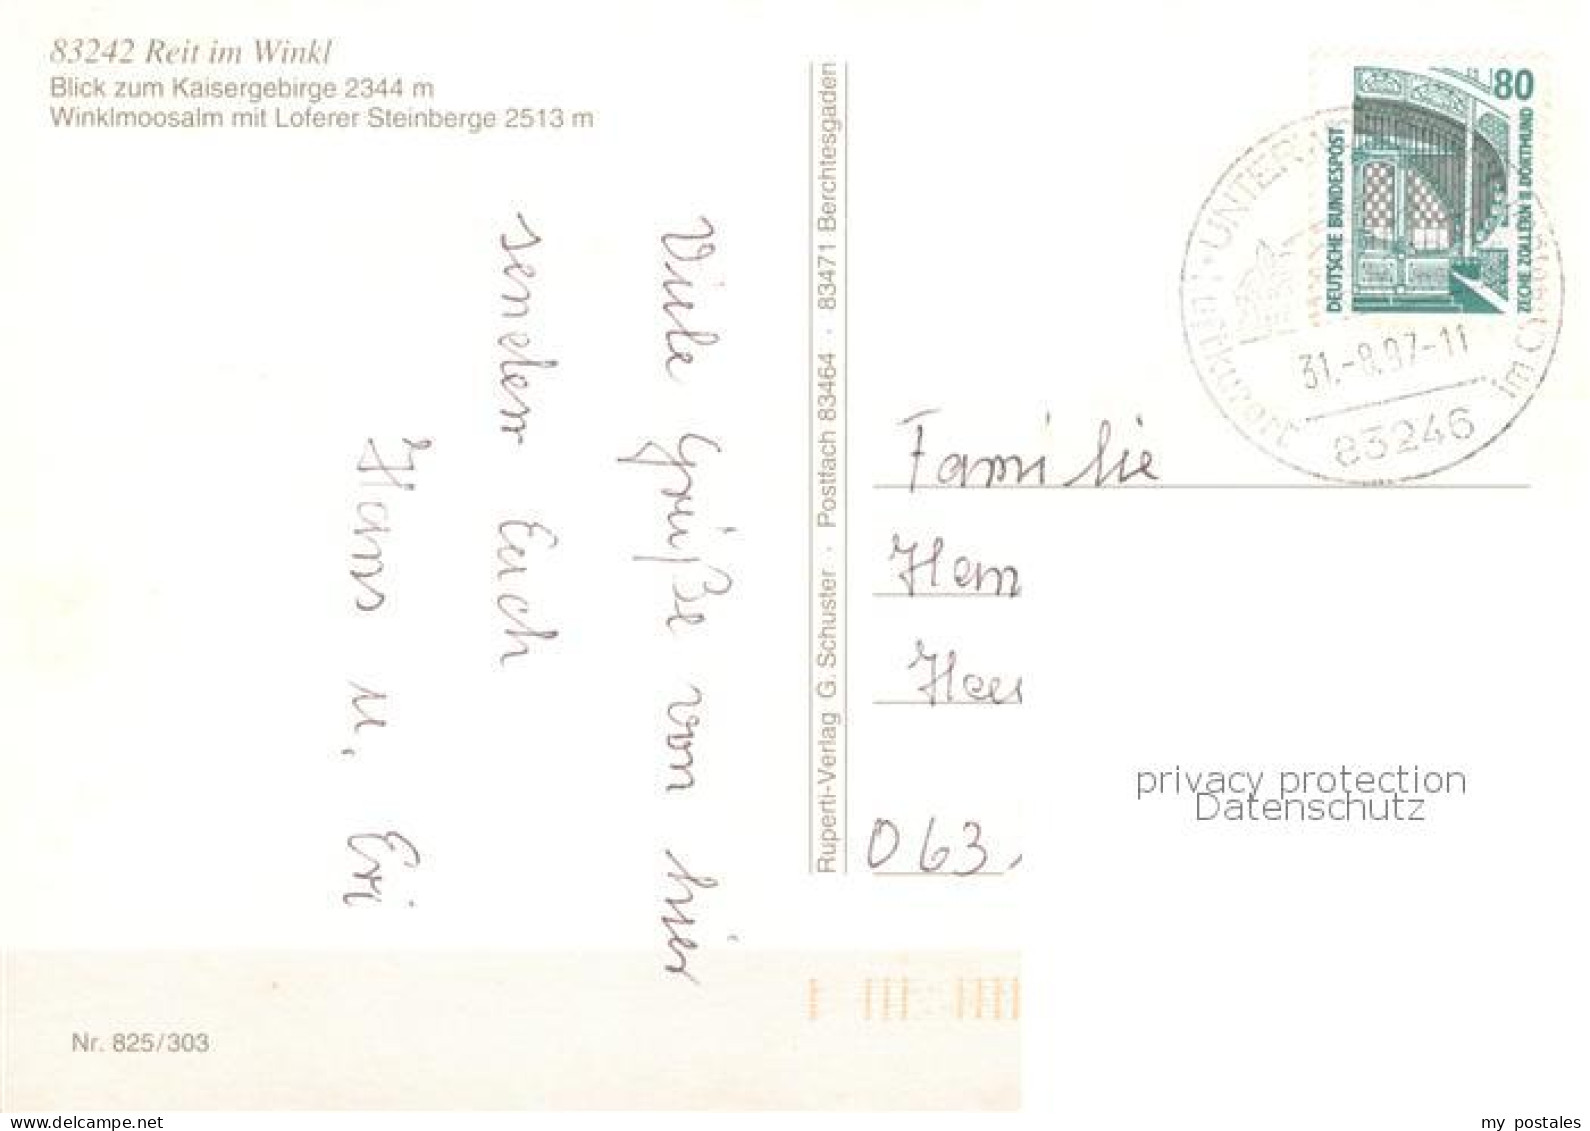 83242 Reit im Winkl
Blick zum Kaisergebirge 2344 m
Winklmoosalm mit Loferer Steinberge 2513 m
Viele Grüße von hier
senden Euch
Hans u. Eri
Ruperti-Verlag G. Schuster · Postfach 83464 · 83471 Berchtesgaden
80
DEUTSCHE BUNDESPOST
ZECHE ZOLLERN II DORTMUND
UNTER
Luftkurort
im Ch
31.-8.97-11
83246
Familie
Hem
Hau
063
privacy protection
Datenschutz
Nr. 825/303
delcampe.net
my postales